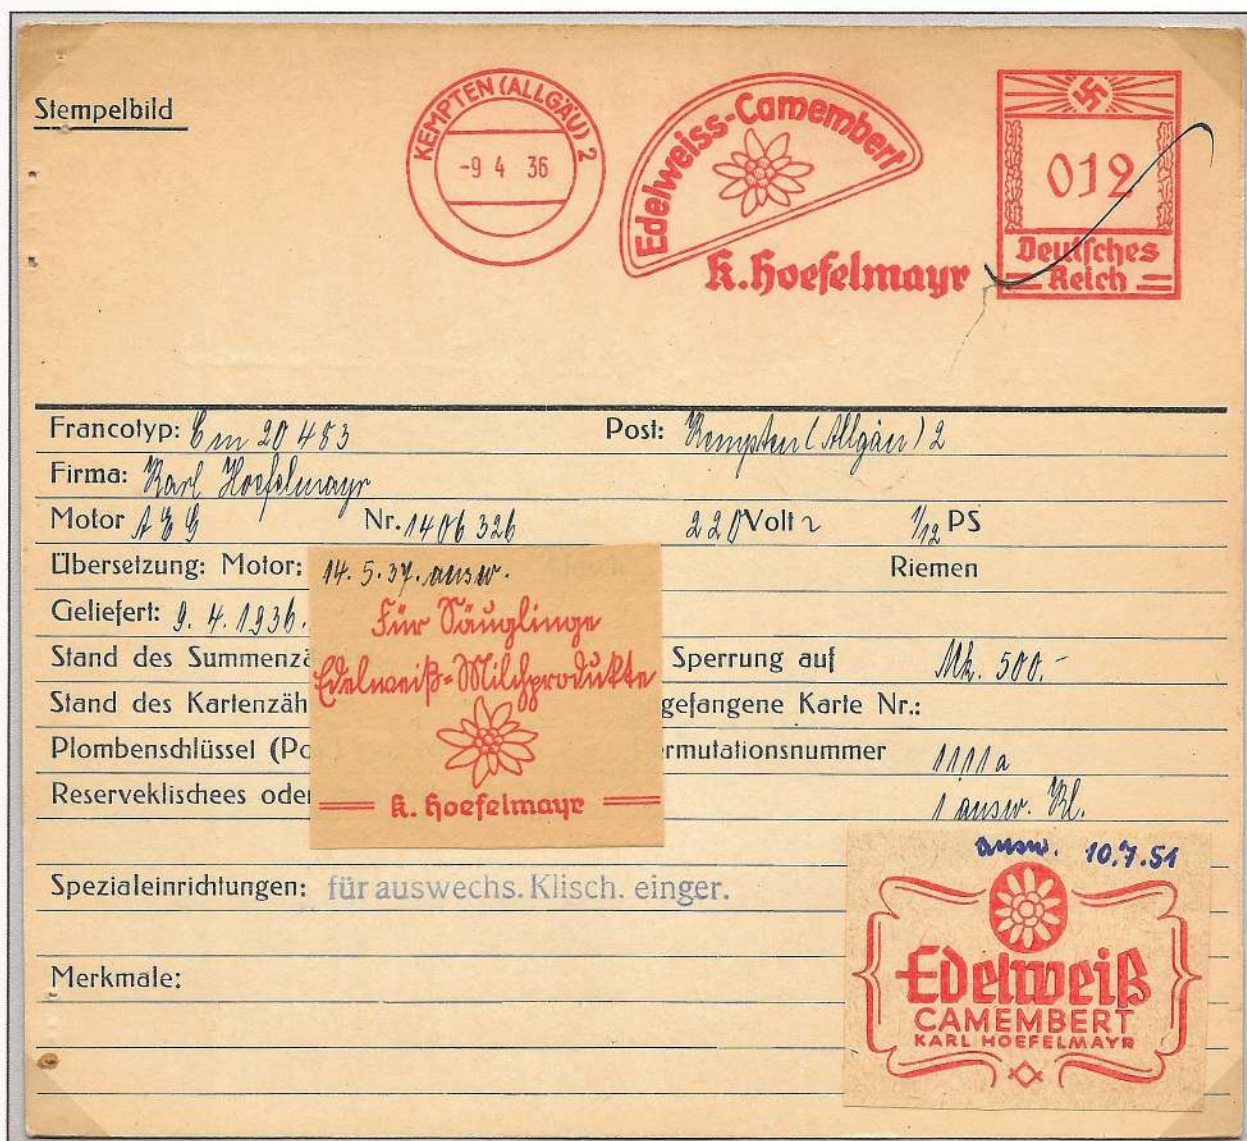 Stempelbild
KEMPTEN (ALLGÄU) 2
-9 4 36
Edelweiss-Camembert
K. Hoefelmayr
012
Deutsches
Reich
Francotyp: Cm 20 483 Post: Kempten (Allgäu) 2
Firma: Karl Hoefelmayr
Motor AEG Nr. 1406 326 220 Volt ~ 1/12 PS
Übersetzung: Motor: Riemen
Geliefert: 9. 4. 1936.
Stand des Summenzä Sperrung auf Mk. 500.-
Stand des Kartenzäh gefangene Karte Nr.:
Plombenschlüssel (Po ermutationsnummer 1111a
Reserveklischees oder 1 ausw. Kl.
14. 5. 37. ausw.
Für Säuglinge
Edelweiß-Milchprodukte
K. Hoefelmayr
Spezialeinrichtungen: für auswechs. Klisch. einger.
Merkmale:
ausw. 10.7.51
Edelweiß
CAMEMBERT
KARL HOEFELMAYR